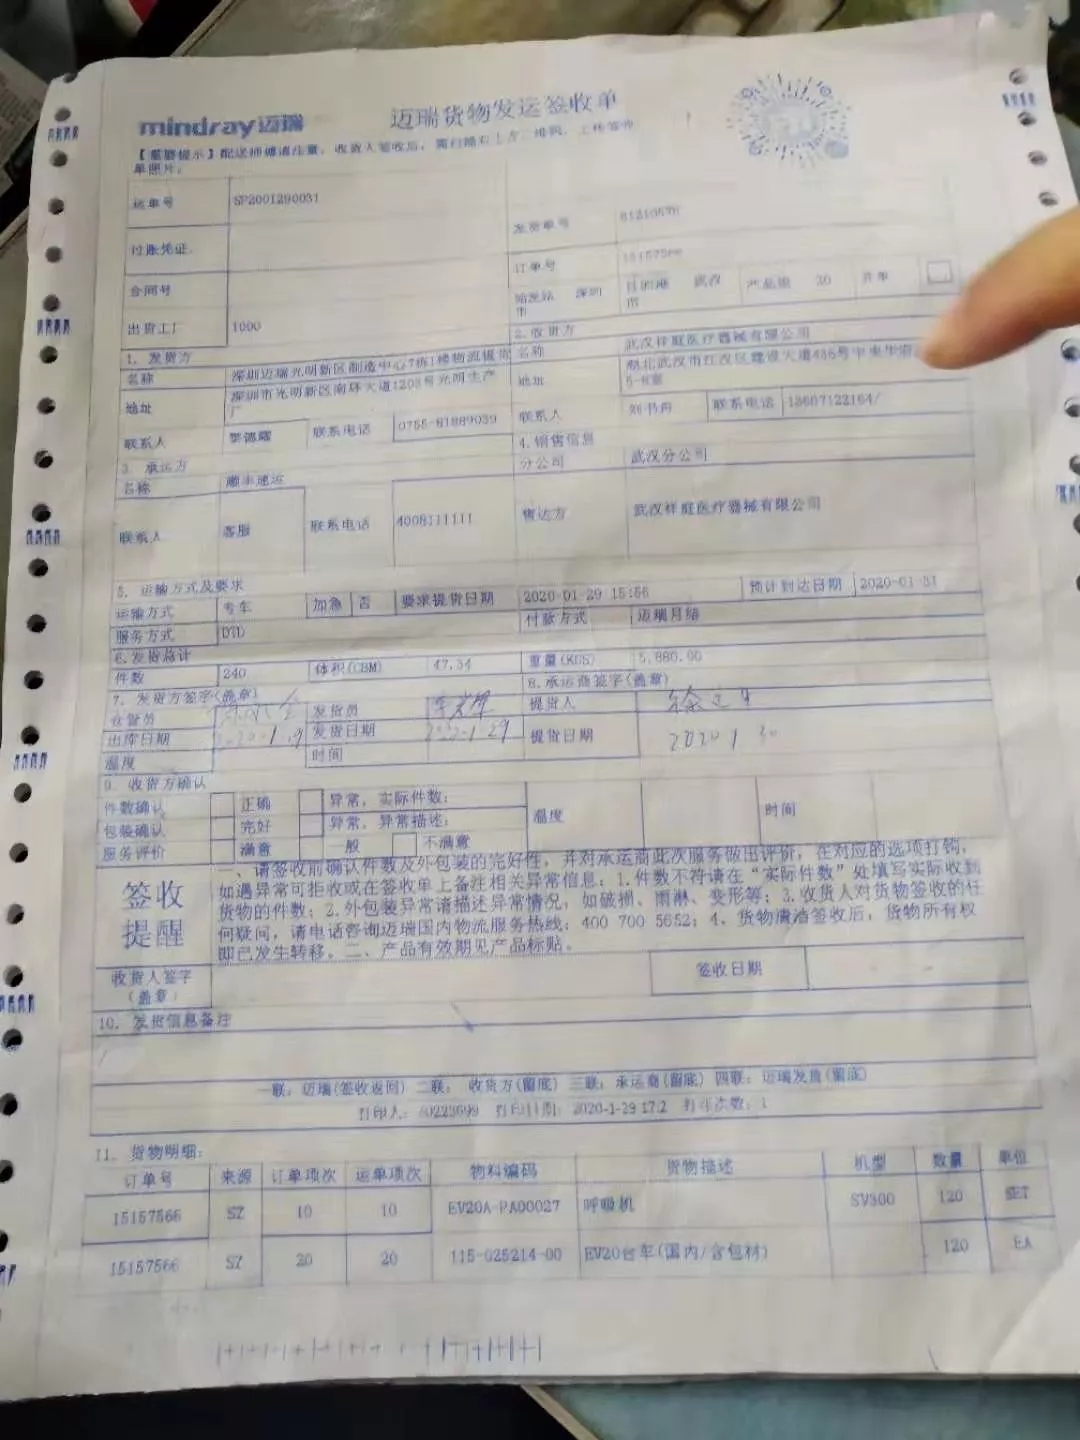 mindray迈瑞
迈瑞货物发运签收单
【温馨提示】配送师傅请注意，收货人签收后，需扫描右上方二维码，上传签收
单照片。
运单号 SP2001290031
付账凭证
合同号
出货工厂 1000
发货单号
订单号 15157566
始发站 深圳市 目的港 武汉市 产品组 20
1. 发货方
名称 深圳迈瑞光明新区制造中心7栋1楼物流提货
地址 深圳市光明新区南环大道1203号光明生产厂
联系人 联系电话 0755-81889039
2. 收货方
名称 武汉祥庭医疗器械有限公司
地址 湖北武汉市江汉区建设大道
联系人 刘书舟 联系电话
3. 承运方
名称 顺丰速运
联系人 客服 联系电话 4008111111
4. 销售信息
分公司 武汉分公司
售达方 武汉祥庭医疗器械有限公司
5. 运输方式及要求
运输方式 专车 加急 否 要求提货日期 2020-01-29 15:56 预计到达日期 2020-01-31
服务方式 DTD 付款方式 迈瑞月结
6.发货总计
件数 240 体积(CBM) 47.34 重量(KGS) 5,880.00
7. 发货方签字(盖章)
仓管员 发货员
出库日期 2020-1-29 发货日期 2020-1-29
温度 时间
8.承运商签字(盖章)
提货人
提货日期 2020 1 30
9. 收货方确认
件数确认 正确 异常，实际件数：
包装确认 完好 异常，异常描述：
服务评价 满意 一般 不满意
温度 时间
签收
提醒
一、请签收前确认件数及外包装的完好性，并对承运商此次服务做出评价，在对应的选项打钩，
如遇异常可拒收或在签收单上备注相关异常信息：1.件数不符请在“实际件数”处填写实际收到
货物的件数；2.外包装异常请描述异常情况，如破损、雨淋、变形等；3.收货人对货物签收的任
何疑问，请电话咨询迈瑞国内物流服务热线：400 700 5652；4、货物清洁签收后，货物所有权
即已发生转移。二、产品有效期见产品标贴。
收货人签字
（盖章）
签收日期
10. 发货信息备注
一联：迈瑞(签收返回) 二联： 收货方(留底) 三联：承运商(留底) 四联：迈瑞发货(留底)
打印人： 打印日期：2020-1-29 17:2 打印次数：1
11. 货物明细：
订单号 来源 订单项次 运单项次 物料编码 货物描述 机型 数量 单位
15157566 SZ 10 10 EV20A-PA00027 呼吸机 SV300 120 SET
15157566 SZ 20 20 115-025214-00 EV20台车(国内/含包材) 120 EA